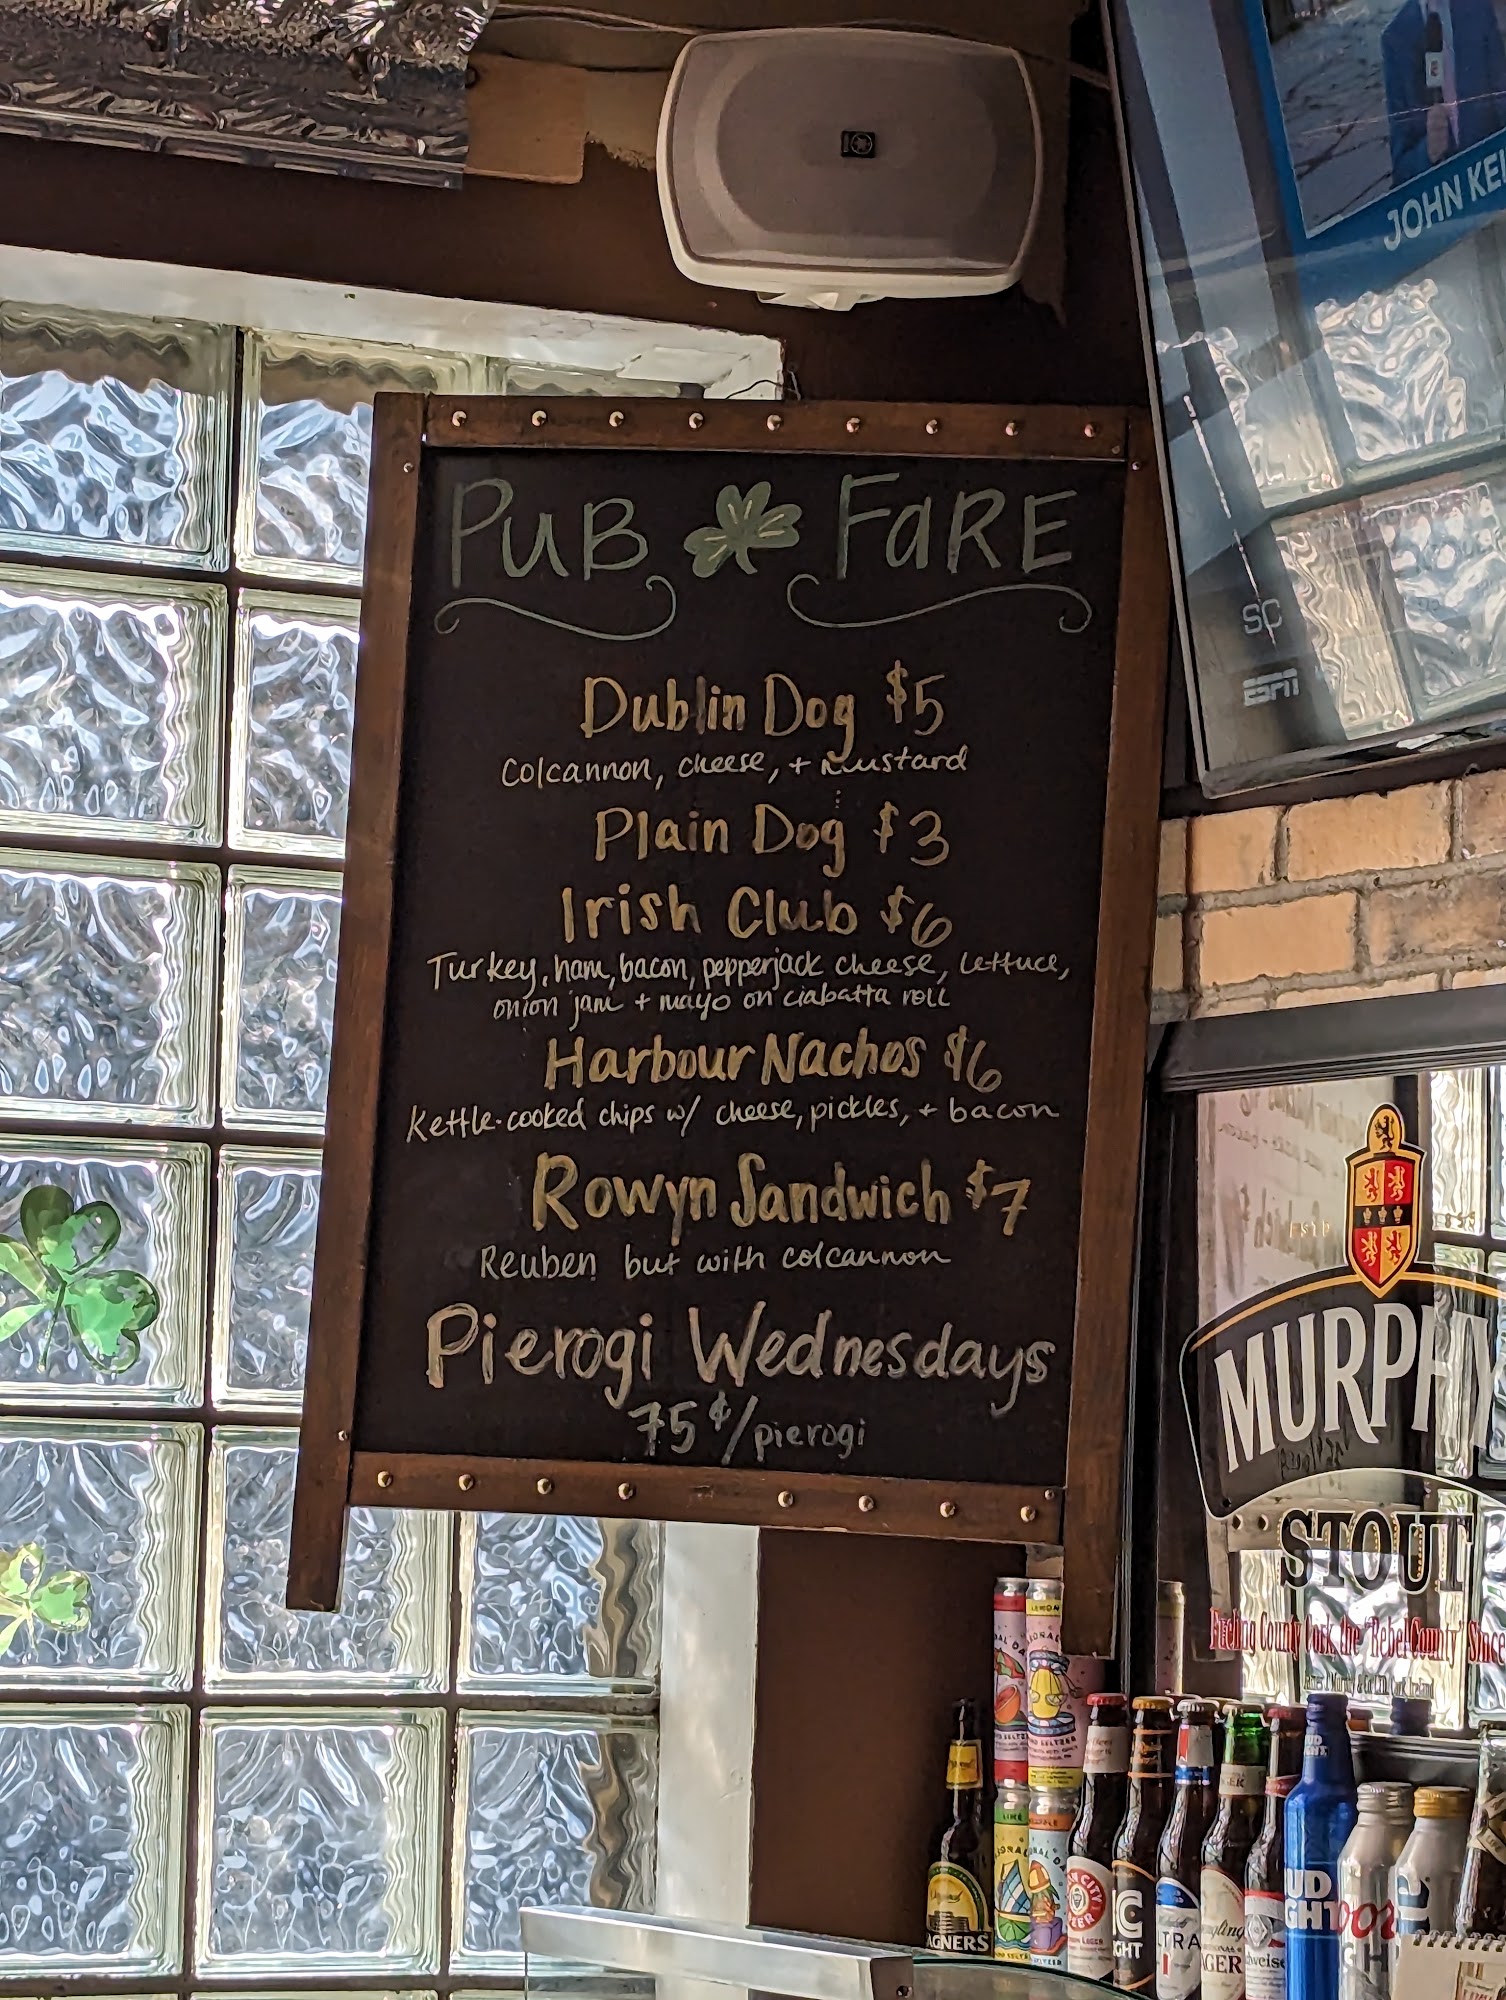 JOHN KE
SC
ESPN
PUB FARE
Dublin Dog $5
Colcannon, cheese, + mustard
Plain Dog $3
Irish Club $6
Turkey, ham, bacon, pepperjack cheese, lettuce,
onion jam + mayo on ciabatta roll
Harbour Nachos $6
Kettle-cooked chips w/ cheese, pickles, + bacon
Rowyn Sandwich $7
Reuben but with colcannon
Pierogi Wednesdays
75¢/pierogi
ESTD
MURPHY
STOUT
Fueling County Cork, the "Rebel County" Since
LEMON
SELTZER
LIME
SELTZER
AGNERS
CITY
BEER
IC
GHT
LTRA
AGER
weise
BUD
LIGHT
UD
GHT